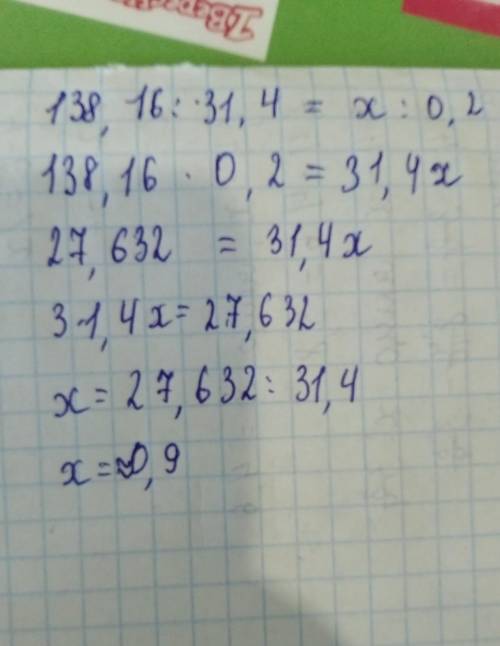 138,16 : 31,4 = x : 0,2
138,16 · 0,2 = 31,4x
27,632 = 31,4x
31,4x = 27,632
x = 27,632 : 31,4
x = 0,9